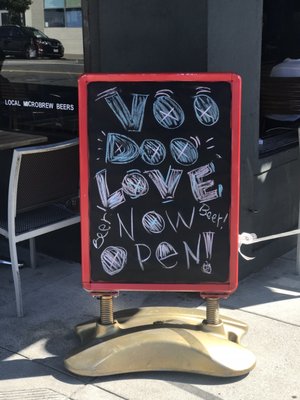 LOCAL MICROBREW BEERS
VOO
DOO
LOVE
Beer! NOW Beer!
OPEN!